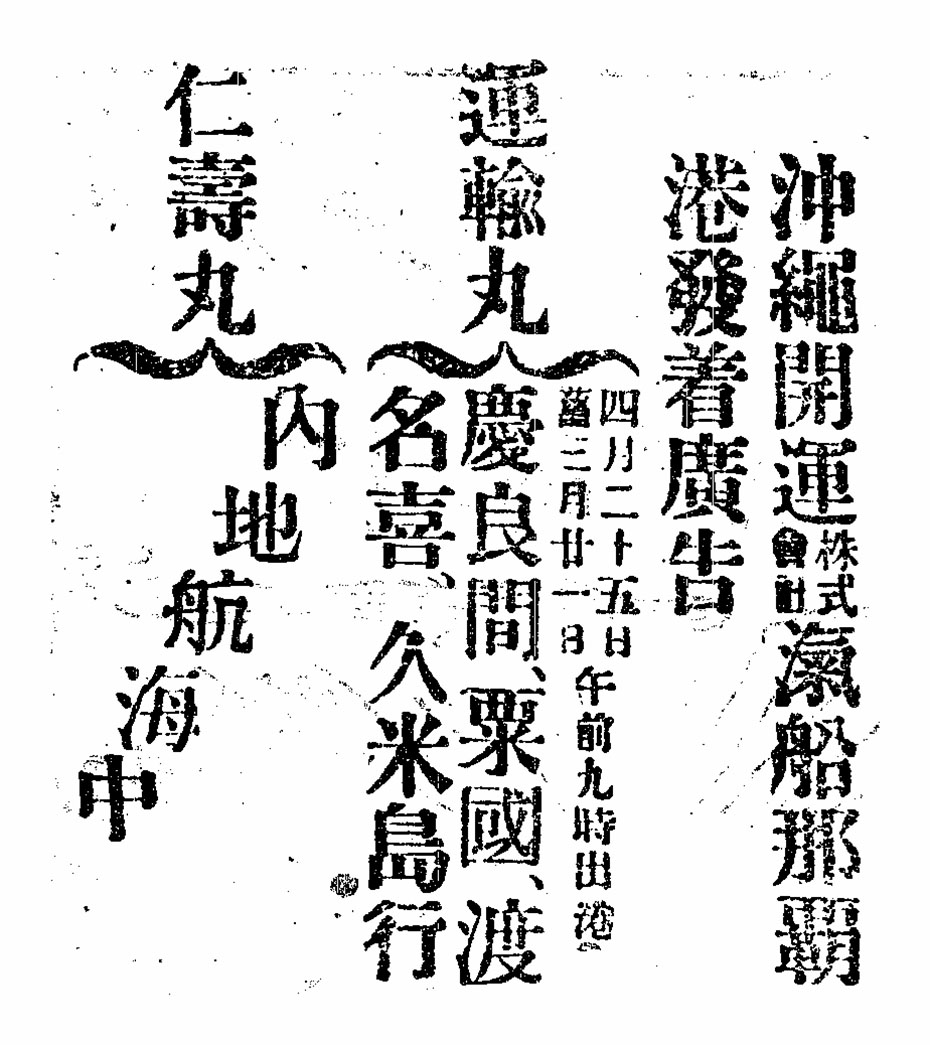 沖繩開運株式會社滊船那覇
港發着廣告
運輸丸
四月二十五日
舊三月廿一日
午前九時出港
慶良間、粟國、渡
名喜、久米島行
仁壽丸
內地航海中